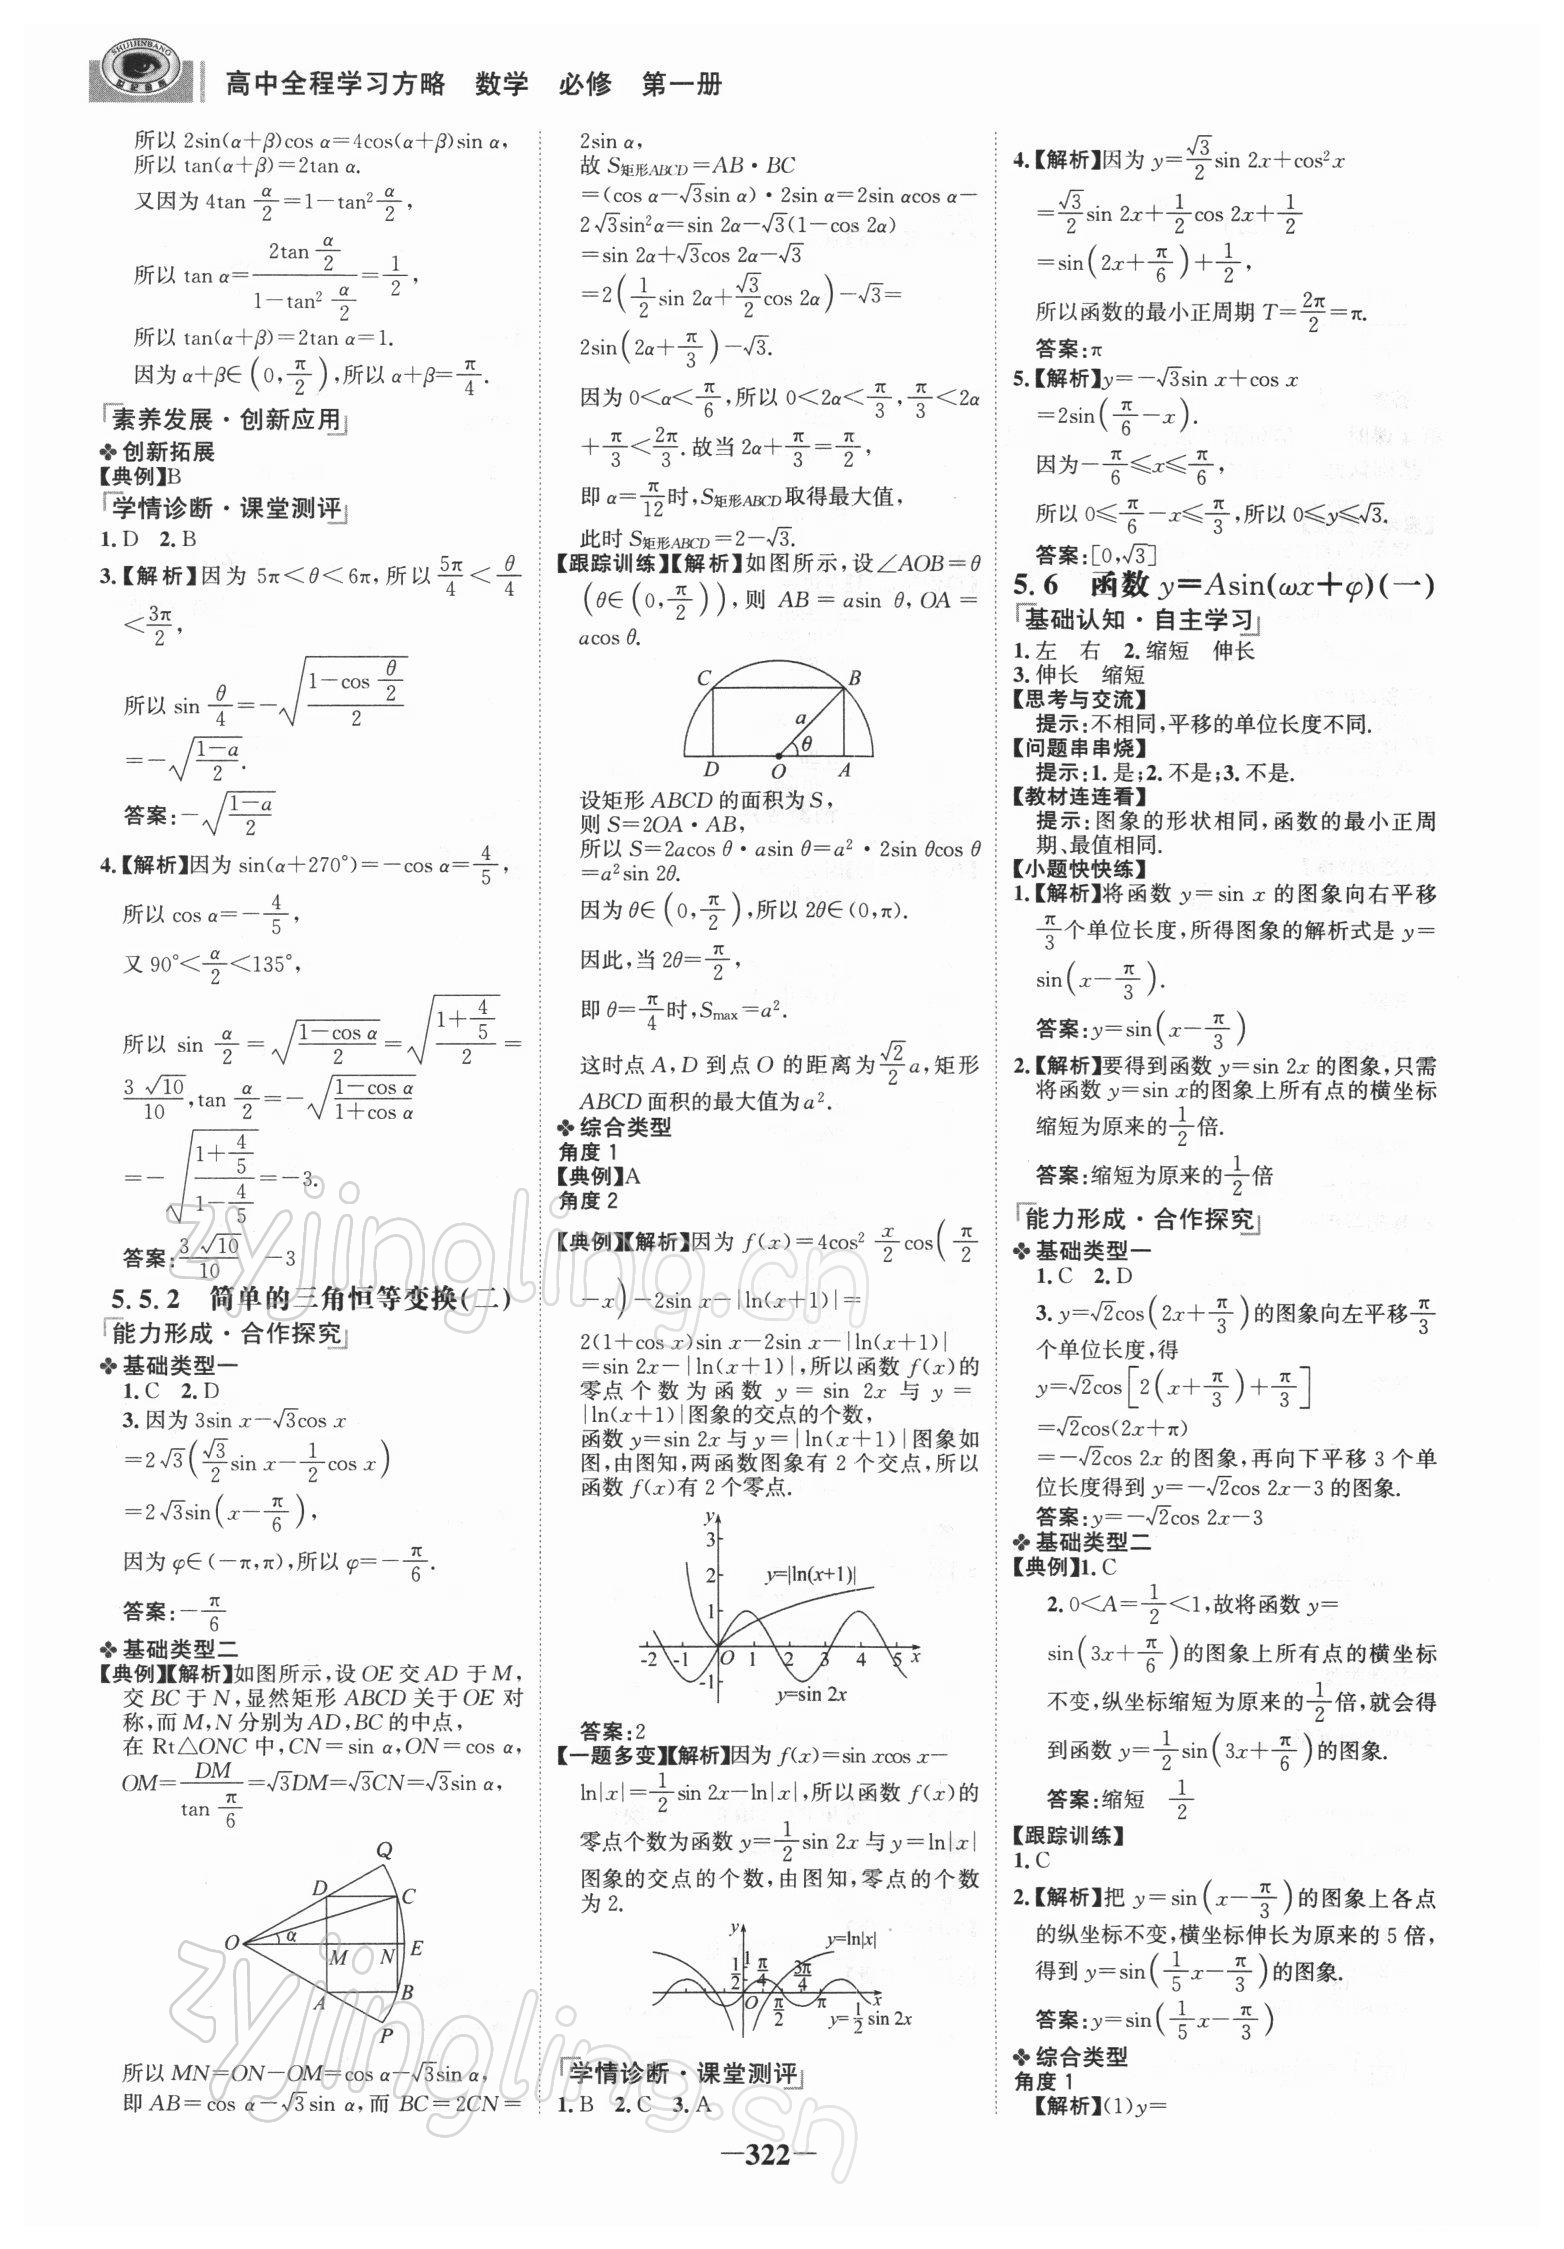 高中全程学习方略 数学 必修 第一册
所以 2sin(α+β)cos α=4cos(α+β)sin α,
所以 tan(α+β)=2tan α.
又因为 4tan α/2=1-tan²α/2,
所以 tan α=2tan α/2/(1-tan² α/2)=1/2,
所以 tan(α+β)=2tan α=1.
因为 α+β∈(0,π/2),所以 α+β=π/4.
「素养发展·创新应用」
❖创新拓展
【典例】B
「学情诊断·课堂测评」
1.D 2.B
3.【解析】因为 5π<θ<6π,所以 5π/4<θ/4
<3π/2,
所以 sin θ/4=-√((1-cos θ/2)/2)
=-√((1-a)/2).
答案:-√((1-a)/2)
4.【解析】因为 sin(α+270°)=-cos α=4/5,
所以 cos α=-4/5,
又 90°<α/2<135°,
所以 sin α/2=√((1-cos α)/2)=√((1+4/5)/2)=
3√10/10,tan α/2=-√((1-cos α)/(1+cos α))
=-√((1+4/5)/(1-4/5))=-3.
答案:3√10/10 -3
5.5.2 简单的三角恒等变换(二)
「能力形成·合作探究」
❖基础类型一
1.C 2.D
3.因为 3sin x-√3cos x
=2√3(√3/2 sin x-1/2 cos x)
=2√3sin(x-π/6),
因为 φ∈(-π,π),所以 φ=-π/6.
答案:-π/6
❖基础类型二
【典例】【解析】如图所示,设 OE 交 AD 于 M,
交 BC 于 N,显然矩形 ABCD 关于 OE 对
称,而 M,N 分别为 AD,BC 的中点,
在 Rt△ONC 中,CN=sin α,ON=cos α,
OM=DM/tan π/6=√3DM=√3CN=√3sin α,
Q
D
C
O
α
M
N
E
A
B
P
所以 MN=ON-OM=cos α-√3sin α,
即 AB=cos α-√3sin α,而 BC=2CN=
2sin α,
故 S矩形ABCD=AB·BC
=(cos α-√3sin α)·2sin α=2sin αcos α-
2√3sin²α=sin 2α-√3(1-cos 2α)
=sin 2α+√3cos 2α-√3
=2(1/2 sin 2α+√3/2 cos 2α)-√3=
2sin(2α+π/3)-√3.
因为 0<α<π/6,所以 0<2α<π/3,π/3<2α
+π/3<2π/3.故当 2α+π/3=π/2,
即 α=π/12时,S矩形ABCD取得最大值,
此时 S矩形ABCD=2-√3.
【跟踪训练】【解析】如图所示,设∠AOB=θ
(θ∈(0,π/2)),则 AB=asin θ,OA=
acos θ.
C
B
a
θ
D
O
A
设矩形 ABCD 的面积为 S,
则 S=2OA·AB,
所以 S=2acos θ·asin θ=a²·2sin θcos θ
=a²sin 2θ.
因为 θ∈(0,π/2),所以 2θ∈(0,π).
因此,当 2θ=π/2,
即 θ=π/4时,Smax=a².
这时点 A,D 到点 O 的距离为√2/2 a,矩形
ABCD 面积的最大值为 a².
❖综合类型
角度 1
【典例】A
角度 2
【典例】【解析】因为 f(x)=4cos² x/2 cos(π/2
-x)-2sin x-|ln(x+1)|=
2(1+cos x)sin x-2sin x-|ln(x+1)|
=sin 2x-|ln(x+1)|,所以函数 f(x)的
零点个数为函数 y=sin 2x 与 y=
|ln(x+1)|图象的交点的个数,
函数 y=sin 2x 与 y=|ln(x+1)|图象如
图,由图知,两函数图象有 2 个交点,所以
函数 f(x)有 2 个零点.
y
3
2
y=|ln(x+1)|
1
-2 -1 O 1 2 3 4 5 x
-1
y=sin 2x
答案:2
【一题多变】【解析】因为 f(x)=sin xcos x-
ln|x|=1/2 sin 2x-ln|x|,所以函数 f(x)的
零点个数为函数 y=1/2 sin 2x 与 y=ln|x|
图象的交点的个数,由图知,零点的个数
为 2.
y
y=ln|x|
1/2 1 π/4 3π/4
O π/2 π x
y=1/2 sin 2x
「学情诊断·课堂测评」
1.B 2.C 3.A
4.【解析】因为 y=√3/2 sin 2x+cos²x
=√3/2 sin 2x+1/2 cos 2x+1/2
=sin(2x+π/6)+1/2,
所以函数的最小正周期 T=2π/2=π.
答案:π
5.【解析】y=-√3sin x+cos x
=2sin(π/6-x).
因为-π/6≤x≤π/6,
所以 0≤π/6-x≤π/3,所以 0≤y≤√3.
答案:[0,√3]
5.6 函数 y=Asin(ωx+φ)(一)
「基础认知·自主学习」
1.左 右 2.缩短 伸长
3.伸长 缩短
【思考与交流】
提示:不相同,平移的单位长度不同.
【问题串串烧】
提示:1.是;2.不是;3.不是.
【教材连连看】
提示:图象的形状相同,函数的最小正周
期、最值相同.
【小题快快练】
1.【解析】将函数 y=sin x 的图象向右平移
π/3个单位长度,所得图象的解析式是 y=
sin(x-π/3).
答案:y=sin(x-π/3)
2.【解析】要得到函数 y=sin 2x 的图象,只需
将函数 y=sin x的图象上所有点的横坐标
缩短为原来的1/2倍.
答案:缩短为原来的1/2倍
「能力形成·合作探究」
❖基础类型一
1.C 2.D
3.y=√2cos(2x+π/3)的图象向左平移π/3
个单位长度,得
y=√2cos[2(x+π/3)+π/3]
=√2cos(2x+π)
=-√2cos 2x 的图象,再向下平移 3 个单
位长度得到 y=-√2cos 2x-3 的图象.
答案:y=-√2cos 2x-3
❖基础类型二
【典例】1.C
2.0<A=1/2<1,故将函数 y=
sin(3x+π/6)的图象上所有点的横坐标
不变,纵坐标缩短为原来的1/2倍,就会得
到函数 y=1/2 sin(3x+π/6)的图象.
答案:缩短 1/2
【跟踪训练】
1.C
2.【解析】把 y=sin(x-π/3)的图象上各点
的纵坐标不变,横坐标伸长为原来的 5 倍,
得到 y=sin(1/5 x-π/3)的图象.
答案:y=sin(1/5 x-π/3)
❖综合类型
角度 1
【解析】(1)y=
—322—
zyjingling.cn
zyjingling.cn